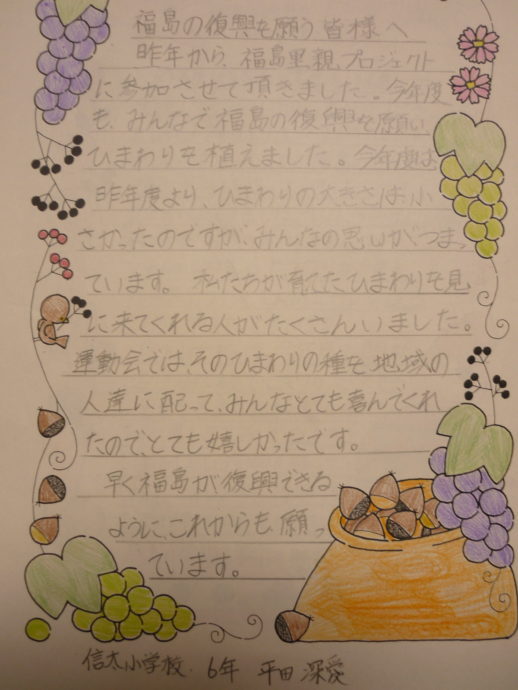 福島の復興を願う皆様へ
昨年から、福島里親プロジェクト
に参加させて頂きました。今年度
も、みんなで福島の復興を願い、
ひまわりを植えました。今年度は
昨年度より、ひまわりの大きさは小
さかったのですが、みんなの思いがつまっ
ています。私たちが育てたひまわりを見
に来てくれる人がたくさんいました。
運動会では、そのひまわりの種を地域の
人達に配って、みんなとても喜んでくれ
たので、とても嬉しかったです。
早く福島が復興できる
ように、これからも願っ
ています。
信太小学校 6年 平田 深愛